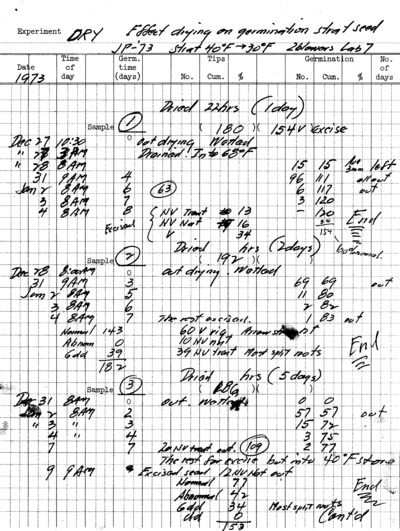 Experiment DRY Effect drying on germination strat seed
JP-73 strat 40°F → 30°F 2 blowers Lab 7
Date Time of day Germ. time (days) Tips No. Cum. % Germination No. Cum. % No. of days
1973
Dried 22 hrs (1 day)
Sample 1 (180)(154 V) Excise
Dec 27 10:30 0 out drying Wetted
" 28 8AM Drained! Into 68°F
" 28 8AM 15 15 left
31 9AM 4 96 111 all out
Jan 2 8AM 6 63 6 117 out
3 8AM 7 3 120
4 8AM 8 NV Treat # 13 - 120 End
Excised NV Nat # 16 34
V 34 154
Dried hrs (2 days)
Sample 2 (192)(
Dec 28 8:00AM 0 out drying Wetted
31 9AM 3 69 69 out
Jan 2 8AM 5 11 80
3 8AM 6 2 82
4 8AM 7 The rest excised. 1 83 out
Normal 143 60 V vig
Abnorm 0 10 NV nat
Gdd 39 39 NV treat Most split roots End
182
Dried hrs (5 days)
Sample 3 (186)(
Dec 31 8AM 0 out. Wetted 0 0
Jan 2 8AM 2 57 57 out
" 3 " 3 15 72
4 " 4 3 75
7 7 20 NV treat out. 109 2 77
The rest for excise but into 40°F store
9 9AM Excised seed 12 NV Not out
Normal 77 End
Abnormal 42
Gdd 34 Most split roots
dd 0 Cont'd
153